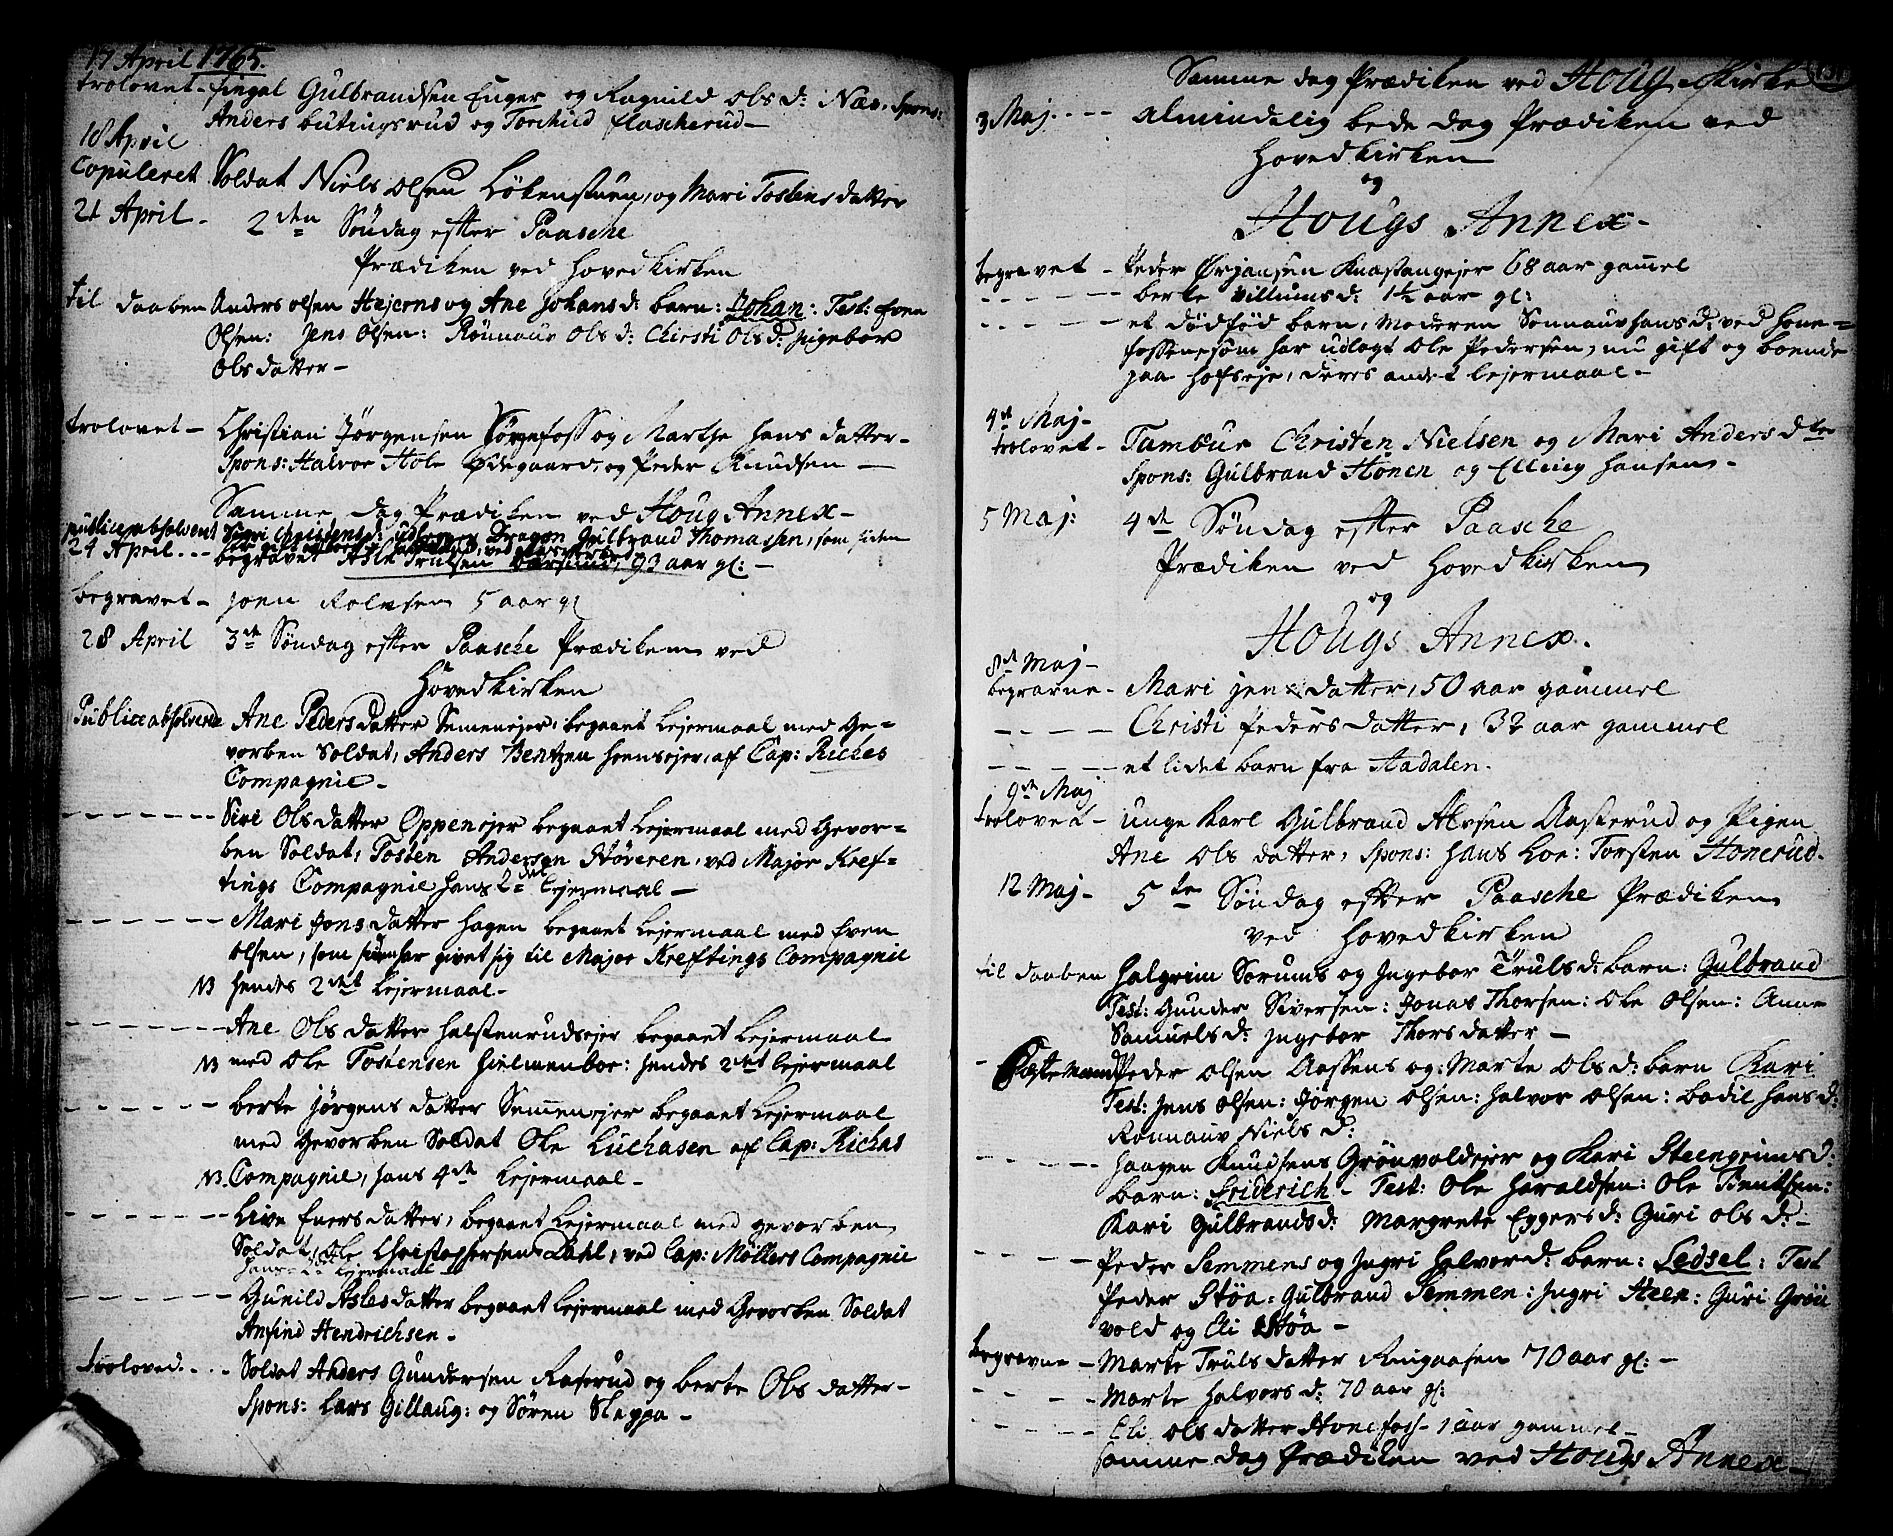 17 April 1765.
trolovet - Engel Gulbrandsen Enger og Ragnild Ols d: Næs. Spons:
Anders butingsrud og Torchild flascherud -
18 April
Copuleret Soldat Niels Olsen Lökenstuen, og Mari Tostens datter
21 April - 2den Söndag efter Paasche
Prædiken ved Hovedkirken
til daaben Anders Olsen Hejerns og Ane Johans d: barn: Johan: Test: Even
Olsen: Jens Olsen: Rönnauv Ols d: Chirsti Ols d: Ingebor
Ols datter -
trolovet - Christian Jörgensen og Marthe Hans datter -
Spons: Halvor Hole Ödegaard, og Peder Knudsen -
Samme dag Prædiken ved Houg Annex -
publice absolvent Sigri Christens d: udlagt Dragon Gulbrand Thomassen, som siden
24 April ... begravet Asle Trulsen 93 aar gl: -
begravet - Joen Rolvsen 5 aar gl
28 April 3de Söndag efter Paasche Prædiken ved
Hovedkirken
Publice absolverede Ane Peders datter Semenejer, begaaet Lejermaal med Ge-
vorben Soldat, Anders Bentzen Hensejer, af Cap: Riches
Compagnie -
- - - - - - - Siri Ols datter Oppenejer begaaet Lejermaal med Gevor-
ben Soldat, Tosten Andersen Støveren, ved Major Kref-
tings Compagnie hans 2det lejermaal -
- - - - - - - Mari Jons datter Hagen begaaet Lejermaal med Even
Olsen, som siden har givet sig til Major Kreftings Compagnie
NB hendes 2det Lejermaal -
- - - - - - - Ane Ols datter Halstenrudsejer begaaet Lejermaal
NB med Ole Tostensen Hielmenboe: hendes 2det lejermaal
- - - - - - - berte Jörgens datter Semmenejer begaaet Lejermaal
med Gevorben Soldat Ole Luchasen af Cap: Riches
NB. Compagnie, hans 4de Lejermaal -
- - - - - - - Live Eners datter, begaaet Lejermaal med gevorben
Soldat, Ole Christophersen Dahl, ved Cap: Möllers Compagnie
hans 2det lejermaal -
- - - - - - - Gunild Asles datter begaaet Lejermaal med Gevorben Soldat
Ansind Hendrichsen -
troloved. . . - Soldat Anders Gundersen Raserud og berte Ols datter -
Spons: Lars Gillaug: og Sören Slagga -
Samme dag Prædiken ved Houg Kirke
3 Maj - - - - Almindelig bede dag Prædiken ved
Hovedkirken
og
Hougs Annex -
begravet - Peder Örjansen Knastangejer 68 aar gammel
- - - - - - berte Villums d: 1½ aar gl:
- - - - - - et dödfød barn, Moderen Sönnauv Hans d: ved Hone-
fossen, som har udlagt Ole Pedersen, nu gift og boende
paa Hofseje, deres andet lejermaal -
4de Maj -
trolovet - Tambur Christen Nielsen og Mari Anders dter
Spons: Gulbrand Hönen og Elling Hansen -
5 Maj: 4de Söndag efter Paasche
Prædiken ved Hovedkirken
og
Hougs Annex.
8de Maj -
begravne - Mari Jens datter, 50 aar gammel
- - - - Christi Peders datter, 32 aar gammel
- - - - et lidet barn fra Aadalen.
9de Maj
trolovet - unge Karl Gulbrand Alvsen Aasterud og Pigen
Ane Ols datter, Spons: Hans Loe: Torsten Honerud -
12 Maj - 5te Söndag efter Paasche Prædiken
ved Hovedkirken
til daaben Halgrim Sorums og Ingebor Truls d: barn: Gulbrand
Test: Gunder Siversen: Jonas Thorsen: Ole Olsen: Anne
Samuels d: Ingebor Thors datter -
- Peder Olsen Aassens og Marte Ols d: barn Kari
Test: Jens Olsen: Jörgen Olsen: Halvor Olsen: bodil Hans d:
Rönnauv Niels d:
- - - - - Haagen Knudsens Grönvoldejer og Kari Steengrims d:
barn: Friderich - Test: Ole Haraldsen: Ole Bentsen:
Kari Gulbrands d: Margrete Eggers d: Guri Ols d: -
- - - - - Peder Semmens og Ingri Halvor d: barn: Sedsel: Test
Peder Støa: Gulbrand Semmen: Ingri Steen: Guri Grön
vold og Eli Støa -
begravne - Marte Truls datter Ringaasen 70 aar gl: -
- - - - Marte Halvors d: 70 aar gl:
- - - - Eli Ols datter Honefos - 1 aar gammel -
Samme dag Prædiken ved Hougs Annex -